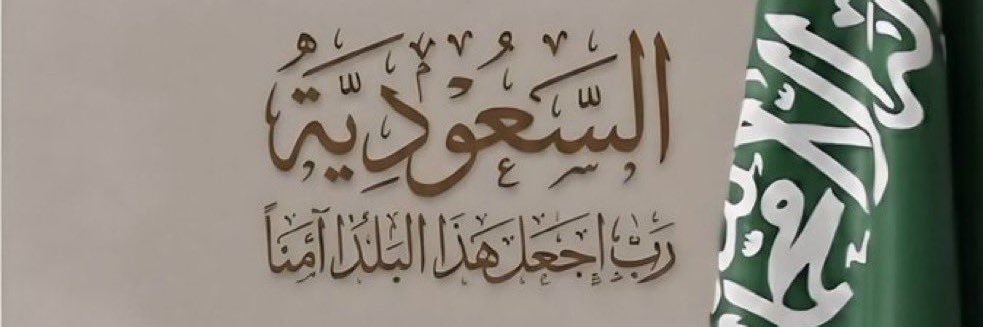 السَّعُوْدِيَّةُ
رَبِّ اجْعَل هَذَا البَلَدَا آمَنَاً